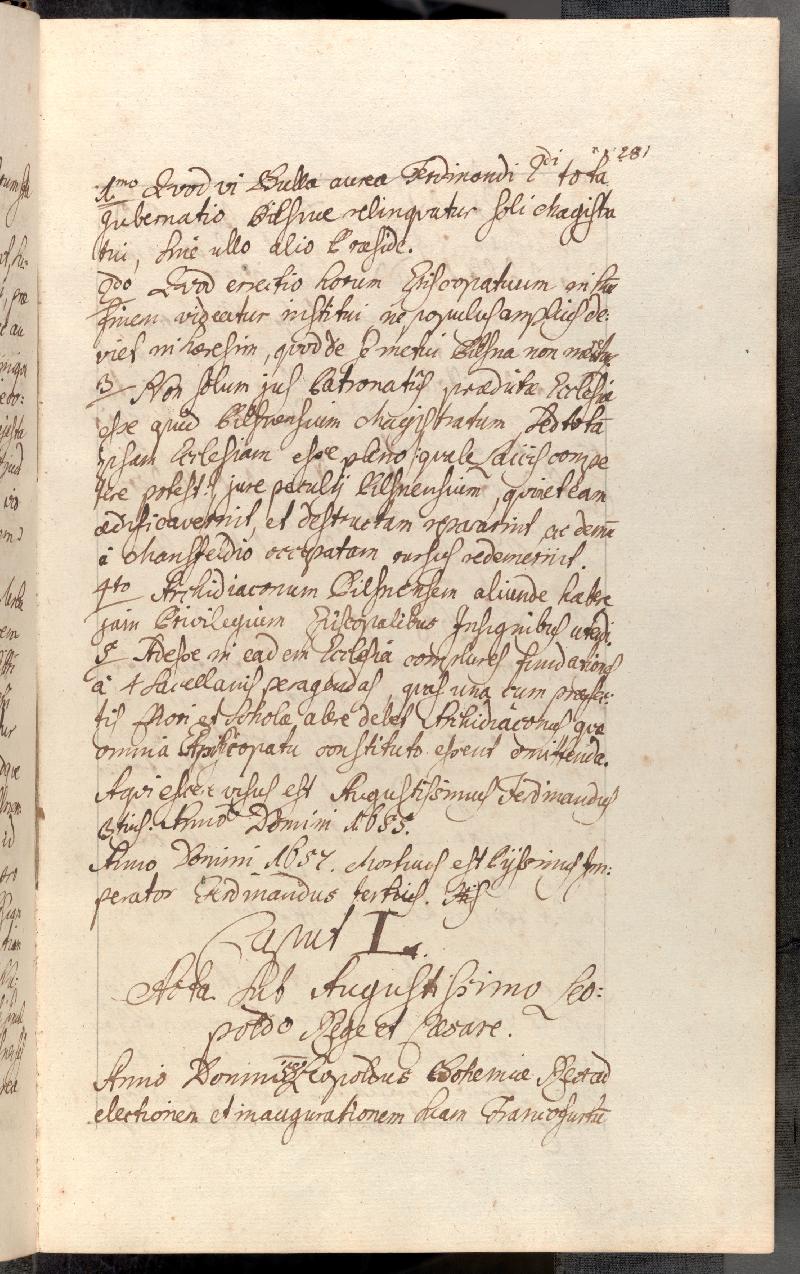 281
1mo Quod vi Bulla aurea Ferdinandi 2di tota
gubernatio Pilsnae relinquatur soli Magistra
tui, sine ullo alio Praeside.
2do Quod erectio horum Episcopatuum in hunc
finem videatur institui ne populus amplius de:
viet in haeresim, quod de se metui Pilsna non
3 Non solum jus Patronatus praedictae Ecclesiae
esse quid Pilsnensium Magistratum sed tota
ipsam Ecclesiam esse pleno /: quale Laicis compe
tere potest :/ jure peculij Pilsnensium, qui et eam
aedificaverint, et destructam repararint, ac demū
à Mansfeldio occupatam rursus redemerint.
4to Archidiaconum Pilsnensem aliunde habere
jam Privilegium Episcopalibus Insignibus utendi.
5 Adesse in eadem Ecclesia complures fundationes
à 4 Sacellanis peragendas, quas una cum
tis Chori et Scholae alere debet Archidiaconus quae
omnia Episcopatu constituto essent omittenda.
Aqui escere visus est Augustissimus Ferdinandus
3tius. Anno Domini 1655.
Anno Domini 1657. Mortuus est Pijssimus Im:
perator Ferdinandus tertius.
Caput L.
Acta sub Augustissimo Leo:
poldo Rege et Caesare.
Anno Domini Leopoldus Bohemiae Rex ad
electionem et inaugurationem suam Francofurtū